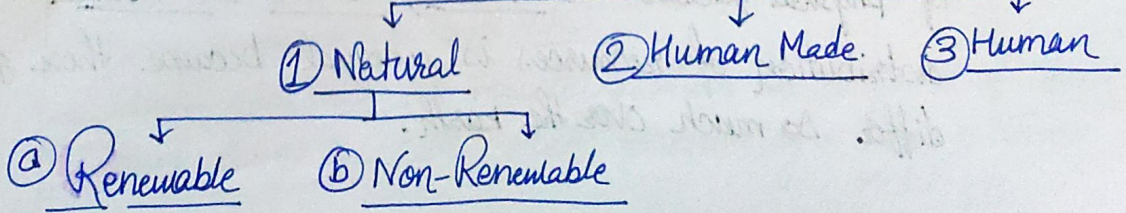 ① Natural ② Human Made. ③ Human
ⓐ Renewable ⓑ Non-Renewable